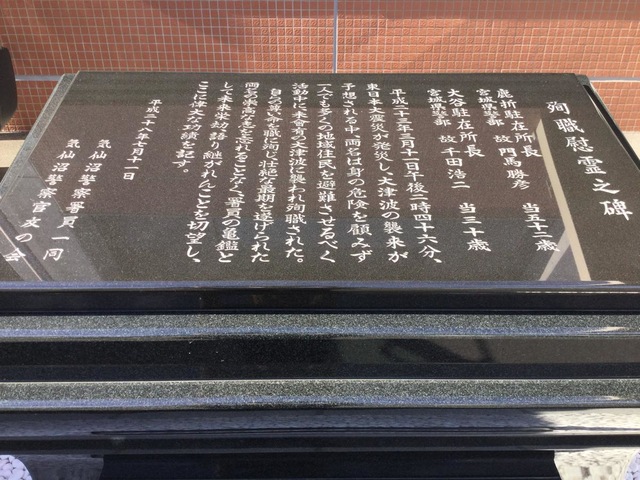 殉職慰霊之碑
鹿折駐在所長
宮城県警部 故 門馬勝彦 当五十二歳
大谷駐在所長
宮城県警部 故 千田浩二 当三十歳
平成二十三年三月十一日午後二時四十六分、
東日本大震災が発災し、大津波の襲来が
予想される中、両名は身の危険を顧みず
一人でも多くの地域住民を避難させるべく
活動中に未曾有の大津波に襲われ殉職された。
自らの尊い命を職に殉じ、壮絶な最期を遂げられた
両名の崇高な姿を忘れることなく、署員の亀鑑と
して未来永劫語り継がれんことを切望し、
ここに偉大な功績を記す。
平成二十八年七月十一日
気仙沼警察署員一同
気仙沼警察官友の会